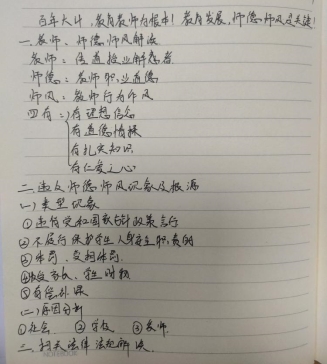 百年大计，教育教师为根本！教育发展，师德师风是关键！
一、教师、师德师风解读
教师：传道授业解惑者
师德：教师职业道德
师风：教师行为作风
四有：有理想信念
有道德情操
有扎实知识
有仁爱之心
二、违反师德师风现象及根源
(一)类型现象
①违背党和国家方针政策言行
②不履行保护学生人身安全职责的
③体罚、变相体罚
④家长、学生财物
⑤有偿补课
(二)原因分析
①社会 ②学校 ③教师
三、相关法律法规解读
NOTEBOOK